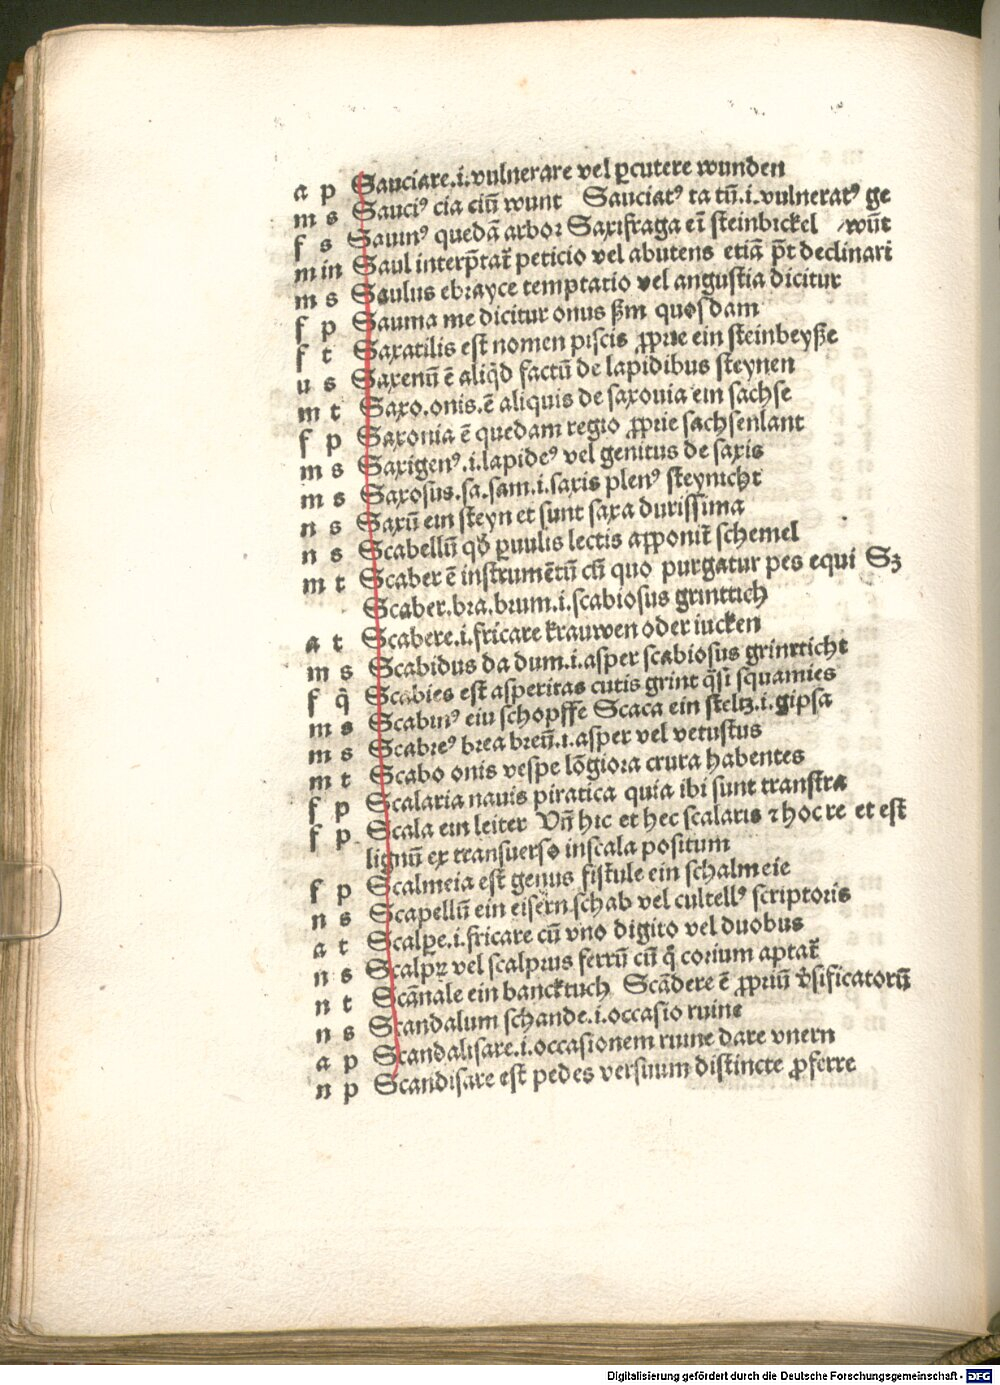 a p Sauciare.i.vulnerare vel ꝑcutere wunden
m s Sauciꝰ cia ciū wunt Sauciatꝰ ta tū.i.vulneratꝰ ge
f s Sauinꝰ quedā arbor Saxifraga eī steinbickel /wūt
m in Saul interp̄tat̄ peticio vel abutens etiā p̄t declinari
m s Saulus ebrayce temptatio vel angustia dicitur
f p Sauma me dicitur onus ẜm quosdam
f t Saxatilis est nomen piscis ꝓprie ein steinbeyße
u s Saxenū ē aliq̇d factū de lapidibus steynen
m t Saxo.onis.ē aliquis de saxonia ein sachse
f p Saxonia ē quedam regio ꝓprie sachsenlant
m s Saxigenꝰ.i.lapideꝰ vel genitus de saxis
m s Saxosus.sa.sam.i.saxis plenꝰ steynicht
n s Saxū ein steyn et sunt saxa durissima
n s Scabellū qđ ꝑuulis lectis apponit̄ schemel
m t Scaber ē instrumētū cū quo purgatur pes equi Sꝫ
Scaber.bra.brum.i.scabiosus grintich
a t Scabere.i.fricare krauwen oder iucken
m s Scabidus da dum.i.asper scabiosus grinticht
f q̄ Scabies est asperitas cutis grint q̄si squamies
m s Scabinꝰ eiu schopffe Scaca ein steltz.i.gipsa
m s Scabreꝰ brea breū.i.asper vel vetustus
m t Scabo onis vespe lōgiora crura habentes
f p Scalaria nauis piratica quia ibi sunt transtra
f p Scala ein leiter Vn̄ hic et hec scalaris ⁊ hoc re et est
lignū ex transuerso inscala positum
f p Scalmeia est genus fistule ein schalmeie
n s Scapellū ein eisern schab vel cultellꝰ scriptoris
a t Scalꝑe.i.fricare cū vno digito vel duobus
n s Scalpꝝ vel scalprus ferrū cū q̊ corium aptat̄
n t Scānale ein bancktuch Scādere ē ꝓpriū v̓sificatorū
n s Scandalum schande.i.occasio ruine
a p Scandalisare.i.occasionem ruine dare vnern
n p Scandisare est pedes versuum distincte ꝓferre
Digitalisierung gefördert durch die Deutsche Forschungsgemeinschaft - DFG